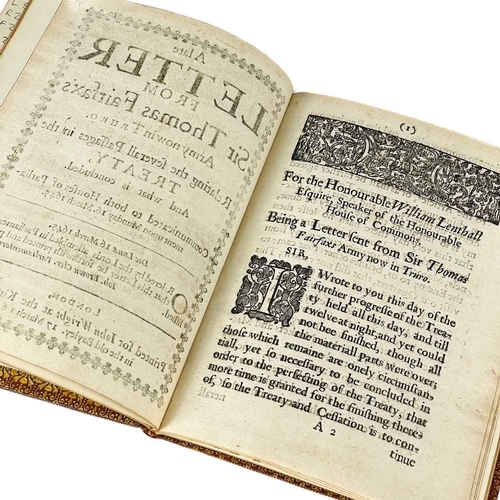 A late
LETTER
FROM
Sir Thomas Fairfax's
Army now in TRURO.
Relating the severall Passages in the
TREATY
And what is concluded.
Communicated to both Houses of Parlia-
ment upon Monday 16 March 1645.
Die Lunæ 16 March 1645.
LONDON,
Printed for John Wright at the
in the old Bayley, 17 March
(1)
For the Honourable William Lenthall
Esquire, Speaker of the Honourable
House of Commons.
Being a Letter sent from Sir Thomas
Fairfaxes Army now in Truro.
SIR,
I Wrote to you this day of the
further progresse of the Trea-
ty held all this day, and till
twelve at night, and yet could
not bee finished, though all
the materiall parts were over;
those which remaine are onely circumstan-
tiall, yet so necessary to be concluded in
order to the perfecting of the Treaty, that
more time is granted for the finishing there-
of, so the Treaty and Cessation is to con-
A 2
tinue